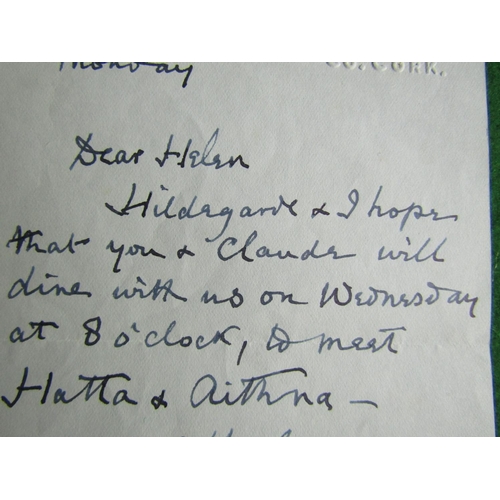 Monday
Co. CORK.
Dear Helen
Hildegarde & I hope
that you & Claude will
dine with us on Wednesday
at 8 o'clock, to meet
Hatta & Aithna —